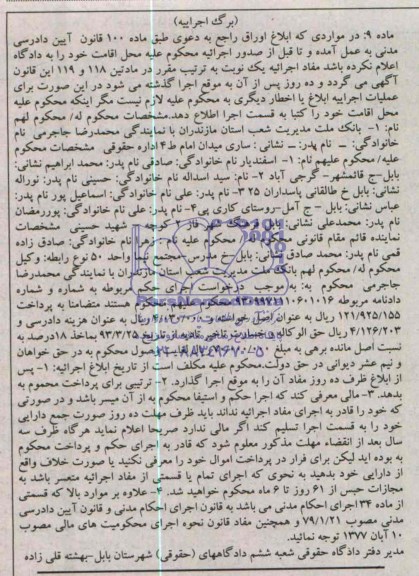 (برگ اجراییه)
ماده ۹: در مواردی که ابلاغ اوراق راجع به دعوی طبق ماده ۱۰۰ قانون آیین دادرسی
مدنی به عمل آمده و تا قبل از صدور اجرائیه محکوم علیه محل اقامت خود را به دادگاه
اعلام نکرده باشد مفاد اجرائیه یک نوبت به ترتیب مقرر در مادتین ۱۱۸ و ۱۱۹ این قانون
آگهی می گردد و ده روز پس از آن به موقع اجرا گذشته می شود در این صورت برای
عملیات اجراییه ابلاغ یا اخطار دیگری به محکوم علیه لازم نیست مگر اینکه محکوم علیه
محل اقامت خود را کتبا به قسمت اجرا اطلاع دهد.مشخصات محکوم له/ محکوم لهم
نام: ۱- بانک ملت مدیریت شعب استان مازندران با نمایندگی محمدرضا جاجرمی نام
خانوادگی: ــ نام پدر: ــ نشانی: ساری میدان امام ط۴ اداره حقوقی مشخصات محکوم
علیه/ محکوم علیهم نام: ۱- اسفندیار نام خانوادگی: صادقی نام پدر: محمد ابراهیم نشانی:
بابل-ج قائمشهر- گرجی آباد ۲- نام: سید اسداله نام خانوادگی: حسینی نام پدر: نوراله
نشانی: بابل خ طالقانی پاسداران ۲۵ ۳- نام پدر: علی نام خانوادگی: اسماعیل پور نام پدر:
عباس نشانی: بابل - ج آمل-روستای کاری پی ۴- نام پدر: علی نام خانوادگی: پوررمضان
نام پدر: محمدعلی نشانی: بابل شهرک فاز کوچه شهید حسینی مشخصات
نماینده قائم مقام قانونی محکوم له/ محکوم علیه نام: زهرا نام خانوادگی: صادق زاده
قمی نام پدر: محمد صادق نشانی: بابل-خ مدرس-مجتمع نیما واحد ۵۰ نوع رابطه: وکیل
محکوم له/ محکوم لهم بانک ملت مدیریت شعب استان مازندران با نمایندگی محمدرضا
جاجرمی محکوم به: به موجب درخواست اجرای حکم مربوطه به شماره و شماره
دادنامه مربوطه محکوم علیهم محکوم هستند متضامنا به پرداخت
۱۲۱/۹۲۵/۱۵۵ ریال به عنوان اصل خواسته و ریال به عنوان هزینه دادرسی و
۴/۱۲۶/۲۰۳ ریال حق الوکاله و خسارت تاخیر تادیه از تاریخ ۹۳/۳/۲۵ بماخذ ۱۸درصد به
نسبت اصل مانده برهی به مبلغ وصول محکوم به در حق خواهان
و نیم عشر دیوانی در حق دولت.محکوم علیه مکلف است از تاریخ ابلاغ اجرائیه: ۱- پس
از ابلاغ ظرف ده روز مفاد آن را به موقع اجرا گذارد. ۲- ترتیبی برای پرداخت محموم به
بدهد. ۳- مالی معرفی کند که اجرا حکم و استیفا محکوم به از آن میسر باشد و در صورتی
که خود را قادر به اجرای مفاد اجرائیه نداند باید ظرف مهلت ده روز صورت جمع دارایی
خود را به قسمت اجرا تسلیم کند اگر مالی ندارد صریحا اعلام نماید هرگاه ظرف سه
سال بعد از انقضاء مهلت مذکور معلوم شود که قادر به اجرای حکم و پرداخت محکوم
به بوده اید لیکن برای فرار در پرداخت اموال خود را معرفی نکنید یا صورت خلاف واقع
از دارایی خود بدهید به نحوی که اجرای تمام یا قسمتی از مفاد اجرائیه متعسر باشد به
مجازات حبس از ۶۱ روز تا ۶ ماه محکوم خواهید شد. ۴-علاوه بر موارد بالا که قسمتی
از ماده ۳۴اجرای احکام مدنی می باشد به قانون اجرای احکام مدنی و قانون آیین دادرسی
مدنی مصوب ۷۹/۱/۲۱ و همچنین مفاد قانون نحوه اجرای محکومیت های مالی مصوب
۱۰ آبان ۱۳۷۷ توجه نمائید.
مدیر دفتر دادگاه حقوقی شعبه ششم دادگاههای (حقوقی) شهرستان بابل-بهشته قلی زاده